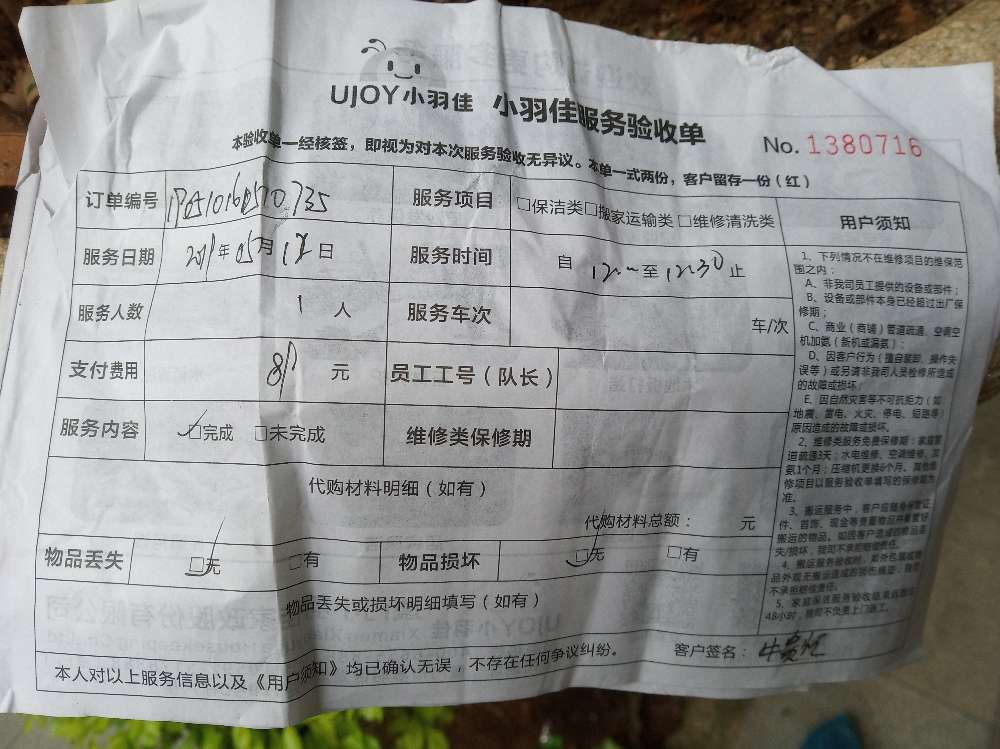 UJOY小羽佳 小羽佳服务验收单
No. 1380716
本验收单一经核签，即视为对本次服务验收无异议。本单一式两份，客户留存一份（红）
订单编号 服务项目 □保洁类□搬家运输类□维修清洗类 用户须知
服务日期 年05月12日 服务时间 自 12:00至12:30止
服务人数 1人 服务车次 车/次
支付费用 元 员工工号（队长）
服务内容 ☑完成 □未完成 维修类保修期
代购材料明细（如有）
代购材料总额： 元
物品丢失 ☑无 □有 物品损坏 ☑无 □有
物品丢失或损坏明细填写（如有）
本人对以上服务信息以及《用户须知》均已确认无误，不存在任何争议纠纷。 客户签名：
1、下列情况不在维修项目的维保范
围之内：
A、非我司员工提供的设备或部件；
B、设备或部件本身已经超过出厂保
修期；
C、商业（商铺）管道疏通、空调空
机加氨（新机或漏氨）；
D、因客户行为（擅自装卸、操作失
误等）或另请非我司人员检修所造成
的故障或损坏；
E、因自然灾害等不可抗拒力（如
地震、雷电、火灾、停电、短路等）
原因造成的故障或损坏。
2、维修类服务免费保修期：家庭管
道疏通3天；水电维修、空调维修、加
氨1个月；压缩机更换6个月、其他维
修项目以服务验收单填写的保修期为
准。
3、搬运服务中，客户应随身保管证
件、首饰、现金等贵重物品并看管好
搬运的物品，如因客户造成的物品丢
失/损坏，我司不承担赔偿责任。
4、搬运服务验收时，如外包装或物
品外观无搬运造成的损伤痕迹，我司
不承担赔偿责任。
5、家庭保洁服务验收结束后超过
48小时，我司不负责上门返工。